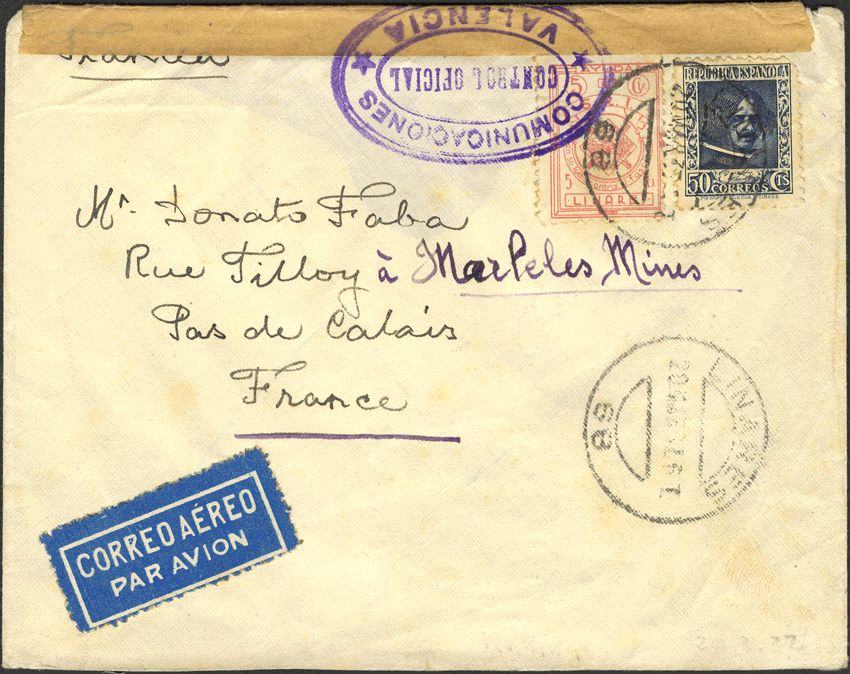 COMUNICACIONES
VALENCIA
CONTROL OFICIAL
5 Cts
LINARES
REPUBLICA ESPAÑOLA
50 CTS
CORREOS
Mr. Donato Faba
Rue Tilloy à Marles les Mines
Pas de Calais
France
LINARES
CORREO AÉREO
PAR AVION